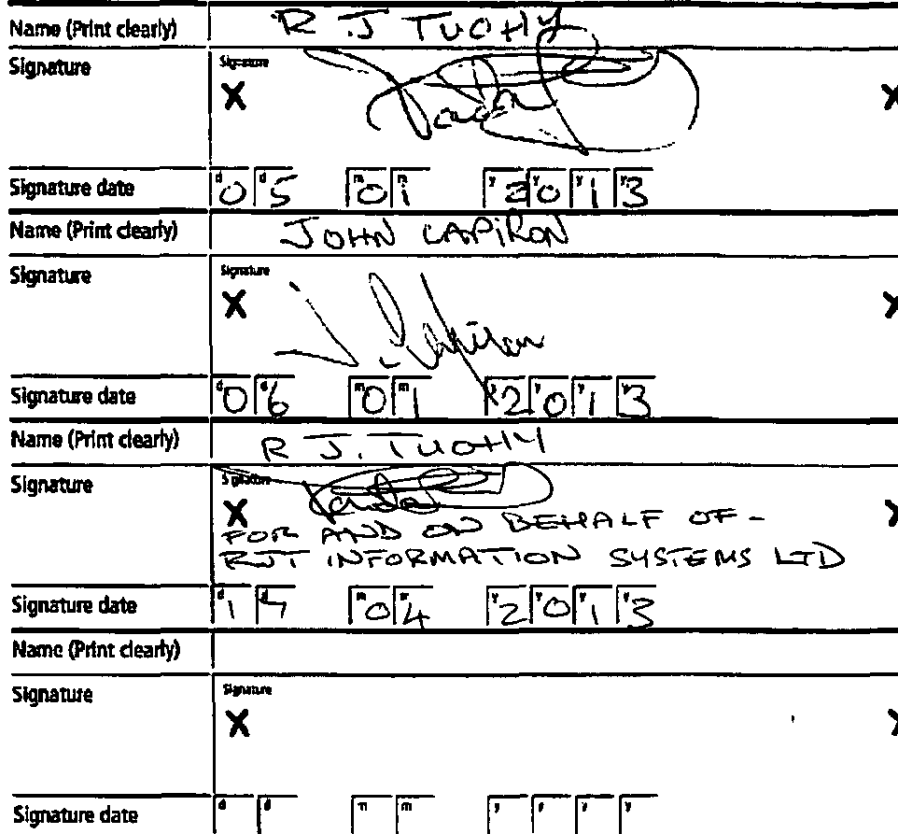 Name (Print clearly) R J TUOHY
Signature Signature
X X
Signature date d0 d5 m01 m1 y2 y0 y1 y3
Name (Print clearly) JOHN LAPIRON
Signature Signature
X X
J. Lapiron
Signature date d0 d6 m0 m1 y2 y0 y1 y3
Name (Print clearly) R J. TUOHY
Signature Signature
X X
FOR AND ON BEHALF OF -
RJT INFORMATION SYSTEMS LTD
Signature date d1 d7 m0 m4 y2 y0 y1 y3
Name (Print clearly)
Signature Signature
X X
Signature date d d m m y y y y